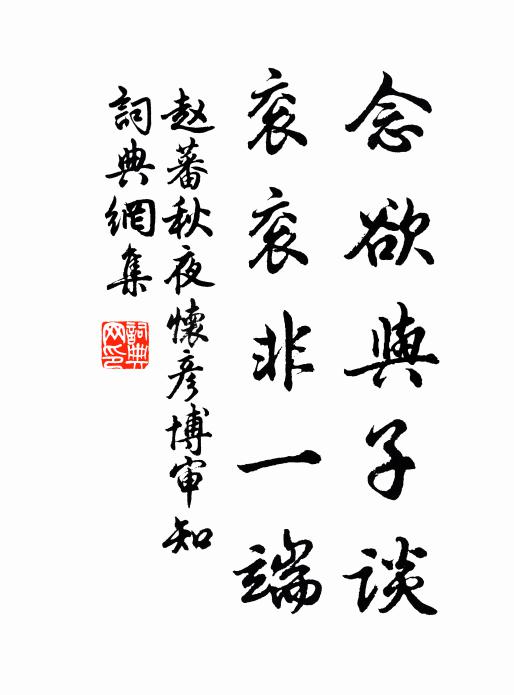 念欲與子談
衮衮非一端
赵蕃秋夜懷彦博审知
詞典網集
詞典网印